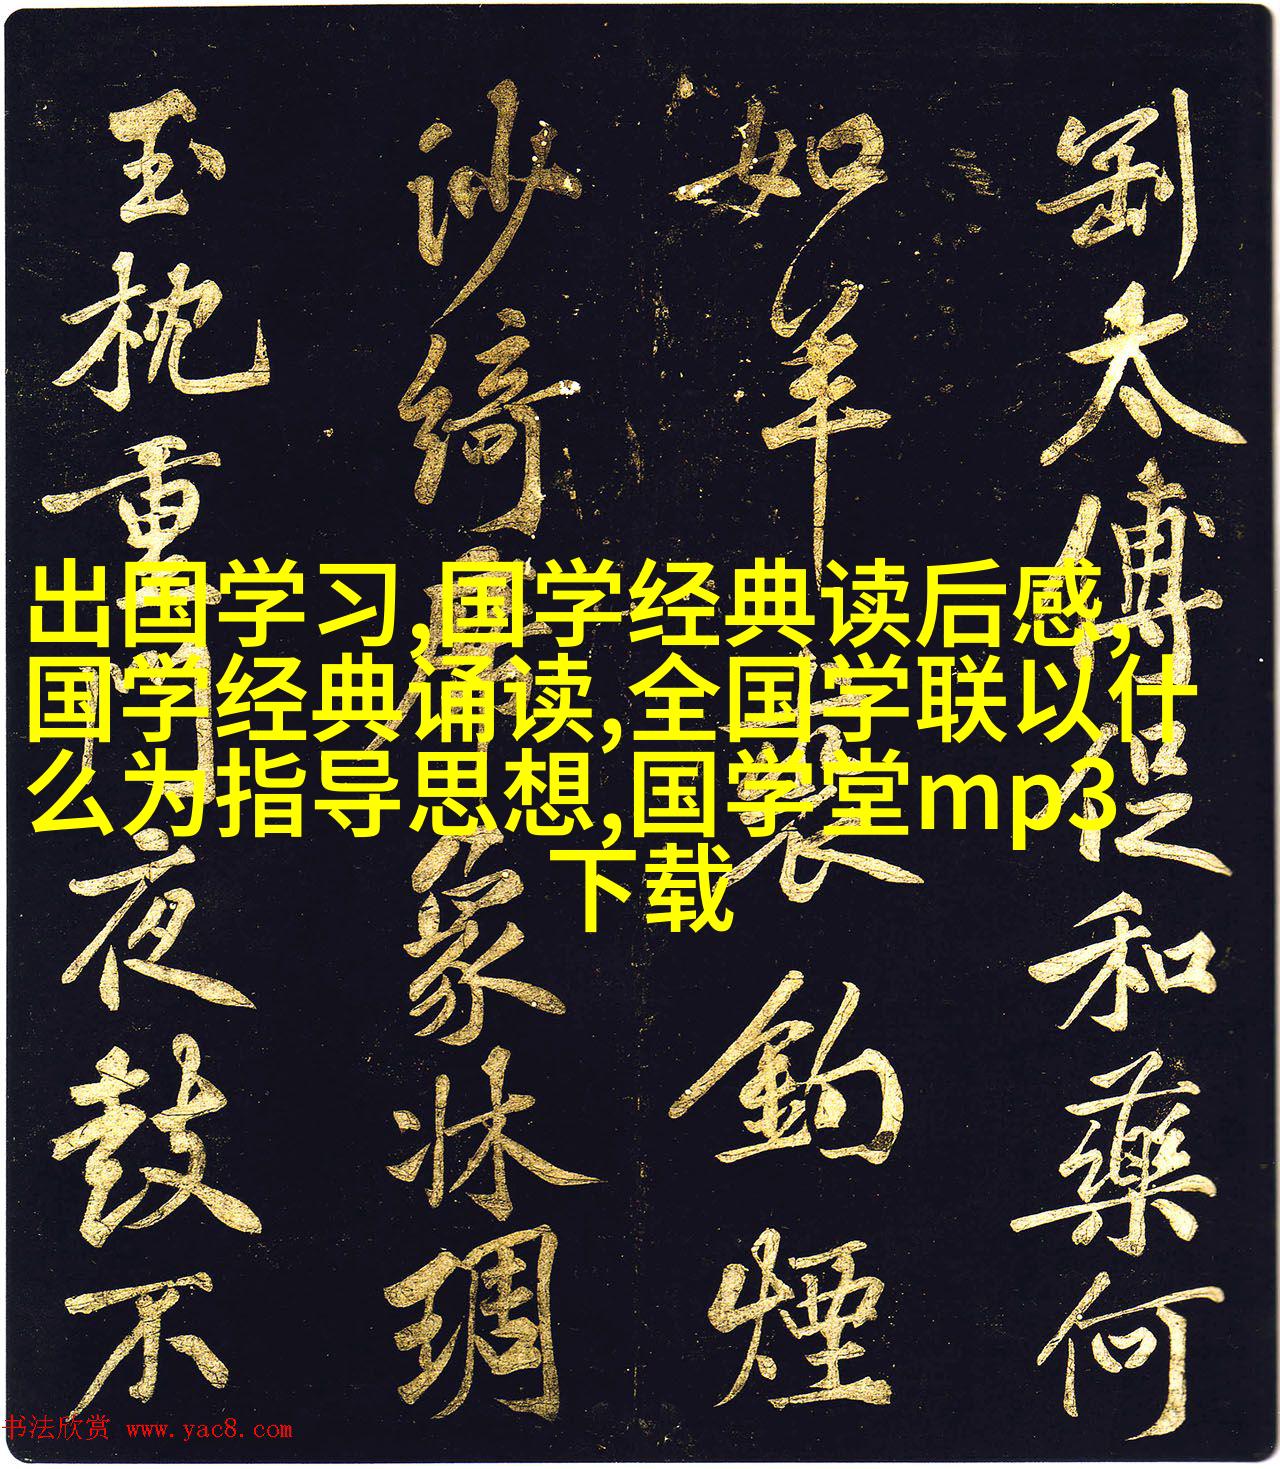 太傅促和藥何
如羊襲鉤煙
沙綺席象牀琱
玉枕重門夜鼓不
出国学习,国学经典读后感,
国学经典诵读,全国学联以什
么为指导思想,国学堂mp3
下载
书法欣赏 www.yac8.com